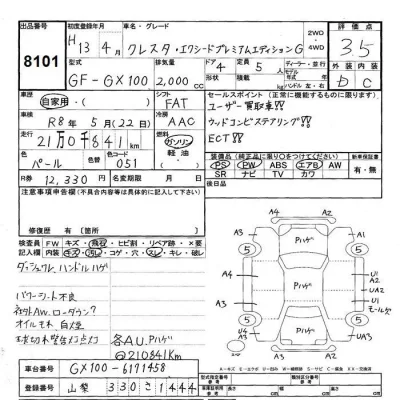 出品番号 初度登録年月 車名・グレード 2WD 4WD 評価点
8101 H13年4月 クレスタ・エクシードプレミアムエディションG 3.5
型式 排気量 ドア 形状 定員 ディーラー・並行 外装 内装
GF-GX100 2,000cc 4 5 モデル年式 ハンドル 左・右 D C
自家用・( ) シフト FAT セールスポイント(正常に機能するものに限ります)
車検 R8年5月(22日) 冷房 AAC ユーザー買取車!!
走行 21万0千841km ガソリン 軽油 ウッドコンビステアリング!!
ECT!!
色 パール 色替 色No. 051
R券 12,330円
装備品(純正品に限り○をつけてください) 新車保証書
PS PW ABS エアB AW
SR ナビ TV カワ 有・無
注意事項申告欄(不具合箇所等は具体的に記入して下さい) 後日品
修復歴 有( )箇所
検査員記入欄 FW キズ・飛石・ヒビ割・リペア跡・×要
内装 キズ・汚レ・コゲ・穴・スレ・キレ・破レ
ダッシュヤレ、ハンドルハゲ
パワーシート不良
社外AW、ローダウン?
オイルモレ 白煙
球切れ警告灯点灯
各AU、Pハゲ
@210841Km
A3 A2 A1
A4 Pハゲ U1 A2
A4 Pハゲ UA2
U1
モールズレ
A3 Pハゲ UA3
A2
5 5 5 5
車台番号 GX100-6171458
登録番号 山梨 330 さ 1444